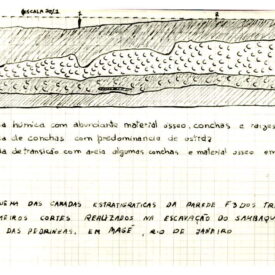 ESCALA 20/1
1 2
a húmica com abundante material osseo, conchas e raizes
a de conchas com predominancia de ostrea
da de transição com areia algumas conchas e material osseo em
UEMA DAS CAMADAS ESTRATIGRAFICAS DA PAREDE F3 DOS TR
MEIROS CORTES REALIZADOS NA ESCAVAÇÃO DO SAMBAQU
DAS PEDRINHAS, EM MAGÉ, RIO DE JANEIRO